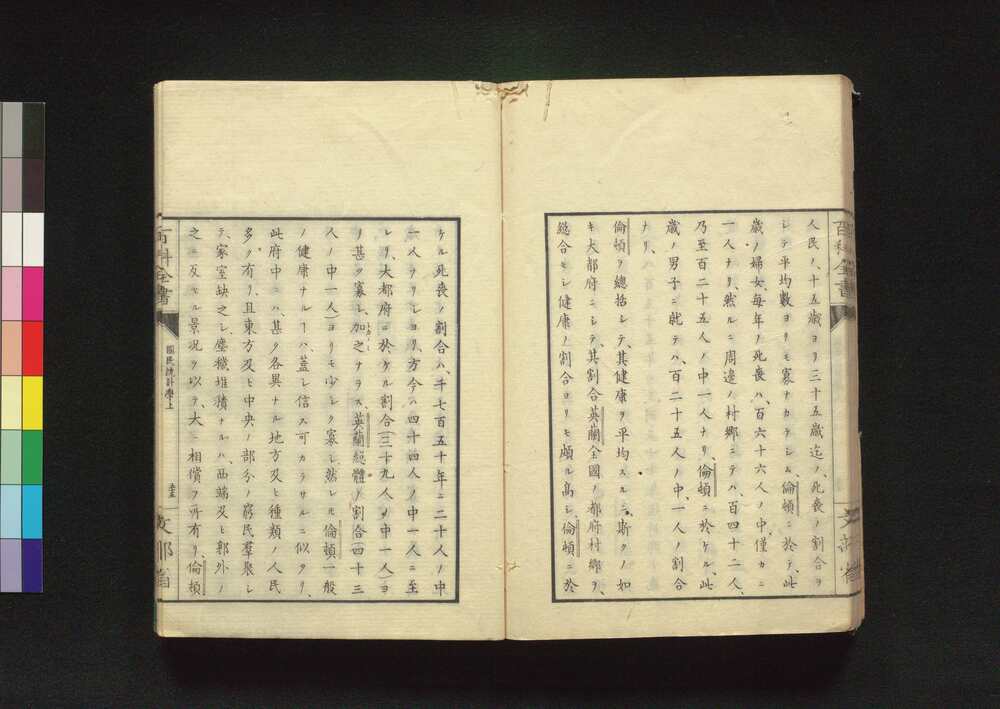 人民ノ、十五歲ヨリ三十五歲迄ノ、死喪ノ割合ヲ
シテ平均數ヨリモ寡ナカラシム、倫頓ニ於テ、此
歲ノ婦女每年ノ死喪ハ、百六十六人ノ中僅カニ
一人ナリ、然ルニ周邊ノ村鄕ニテハ、百四十二人、
乃至百二十五人ノ中一人ナリ、倫頓ニ於ケル、此
歲ノ男子ニ就テハ、百二十五人ノ中、一人ノ割合
ナリ、
倫頓ヲ總括シテ、其健康ヲ平均スルニ、斯クノ如
キ大都府ニシテ、其割合英蘭全國ノ都府村鄕ヲ、
總合セシ健康ノ割合ヨリモ頗ル高シ、倫頓ニ於
ケル死喪ノ割合ハ、千七百五十年ニ二十人ノ中
一人ナリシヨリ、方今ハ四十四人ノ中一人ニ至
レリ、大都府ニ於ケル割合(三十九人ノ中一人)ヨリ
ノ甚タ寡シ、加之ナラス、英蘭總體ノ割合(四十三
人ノ中一人)ヨリモ少シク寡シ、然レモ倫頓一般
ノ健康ナルヿハ、蓋シ信ス可カラサルニ似タリ、
此府中ニハ、甚タ各異ナル地方及ヒ種類ノ人民
多ク有リ、且東方及ヒ中央ノ部分ノ窮民羣聚シ
テ、家室缺乏シ、塵穢堆積ナルハ、西端及ヒ郭外ノ
之ニ反セル景況ヲ以テ、大ニ相償フ所有リ、倫頓
百科全書
國民統計學上
文部省